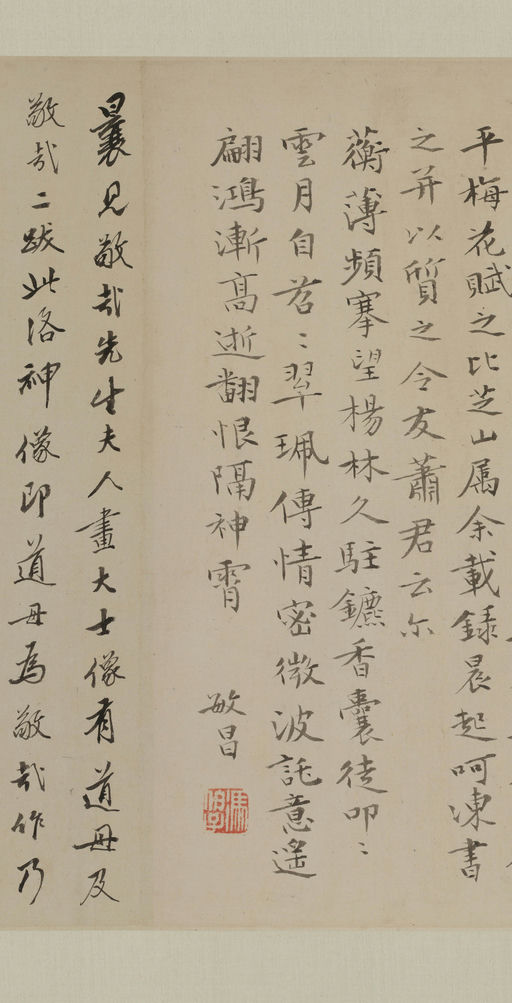 平梅花賦之比芝山属余載録晨起呵凍書
之并以質之令友蕭君云尔
蘅薄頻搴望楊林久駐鑣香囊徒叩〻
雲月自苕〻翠珮傳情密微波託意遙
翩鴻漸高逝翻恨隔神霄
敏昌
曩見敬哉先生夫人畫大士像有道毋及
敬哉二跋此洛神像即道毋為敬哉作乃